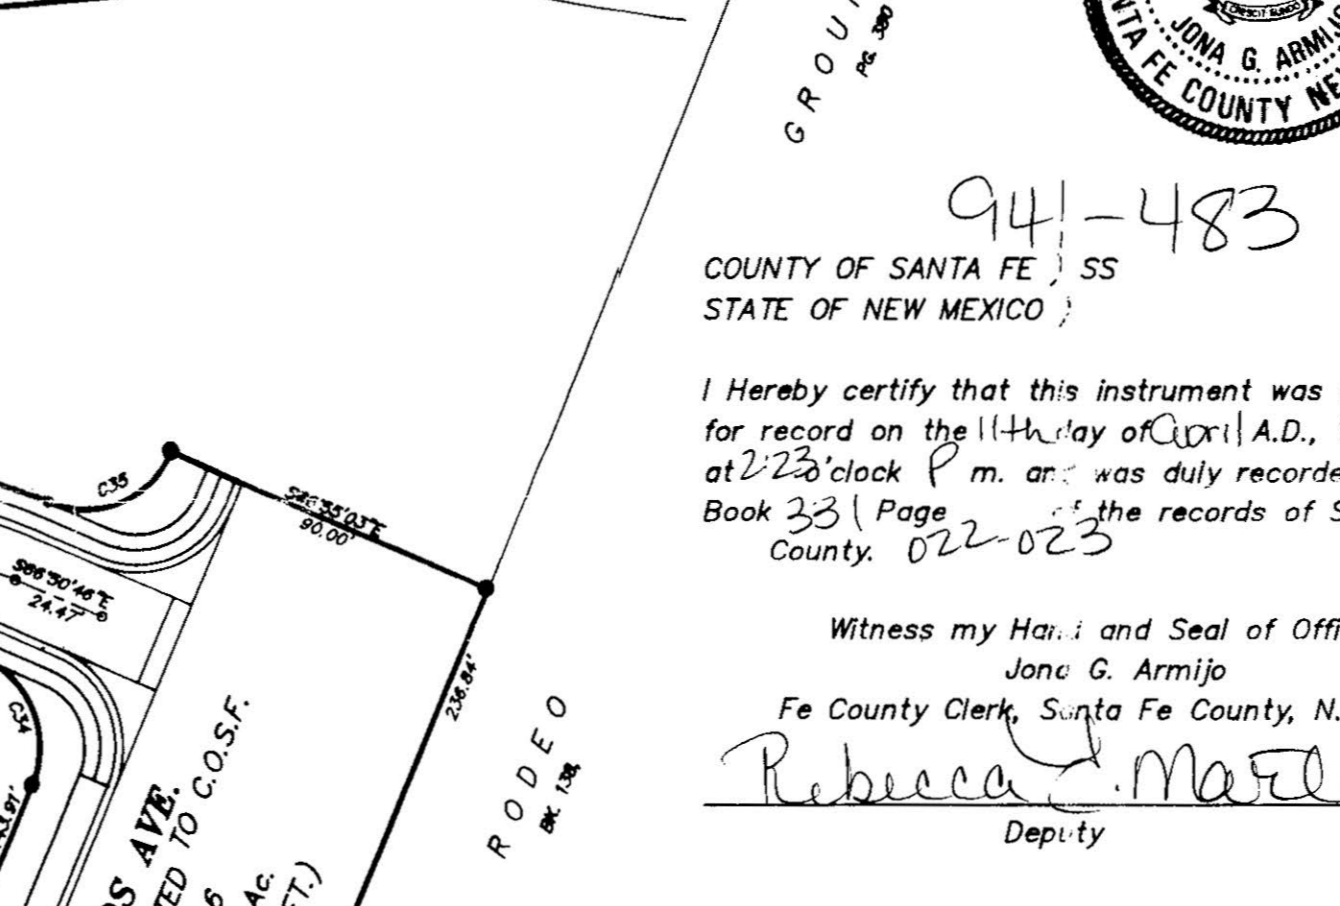 CRESCIT EUNDO
JONA G. ARMIJO
SANTA FE COUNTY NE
GROU
PG. 380
941-483
COUNTY OF SANTA FE ) SS
STATE OF NEW MEXICO )
I Hereby certify that this instrument was
for record on the 11th day of April A.D.,
at 2:23 o'clock P m. and was duly recorde
Book 331 Page of the records of S
County. 022-023
Witness my Hand and Seal of Offi
Jona G. Armijo
Fe County Clerk, Santa Fe County, N.
Rebecca Mart
Deputy
C35
90.00'
S66°50'46"E
24.47'
C34
236.84'
RODEO
BK. 138,
OS AVE.
TED TO C.O.S.F.
6
AC.
FT.)